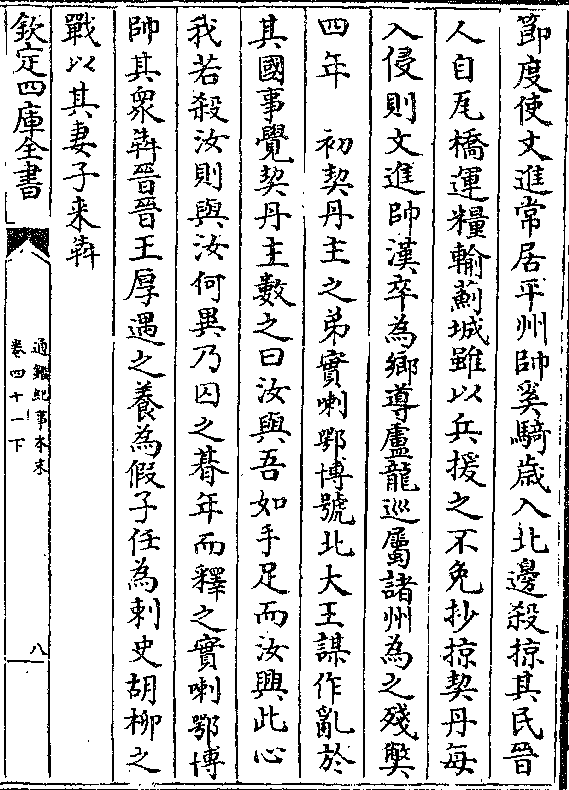 節度使文進常居平州帥奚騎歳入北邊殺掠其民晉
人自瓦橋運糧輸薊城雖以兵援之不免抄掠契丹每
入侵則文進帥漢卒為鄉導盧龍巡屬諸州為之殘獘
四年　初契丹主之弟實喇鄂博號北大王謀作亂於
其國事覺契丹主數之曰汝與吾如手足而汝興此心
我若殺汝則與汝何異乃囚之朞年而釋之實喇鄂博
帥其衆犇晉晉王厚遇之養為假子任為刺史胡柳之
戰以其妻子来犇
欽定四庫全書
通鑑紀事本末
卷四十一下
八